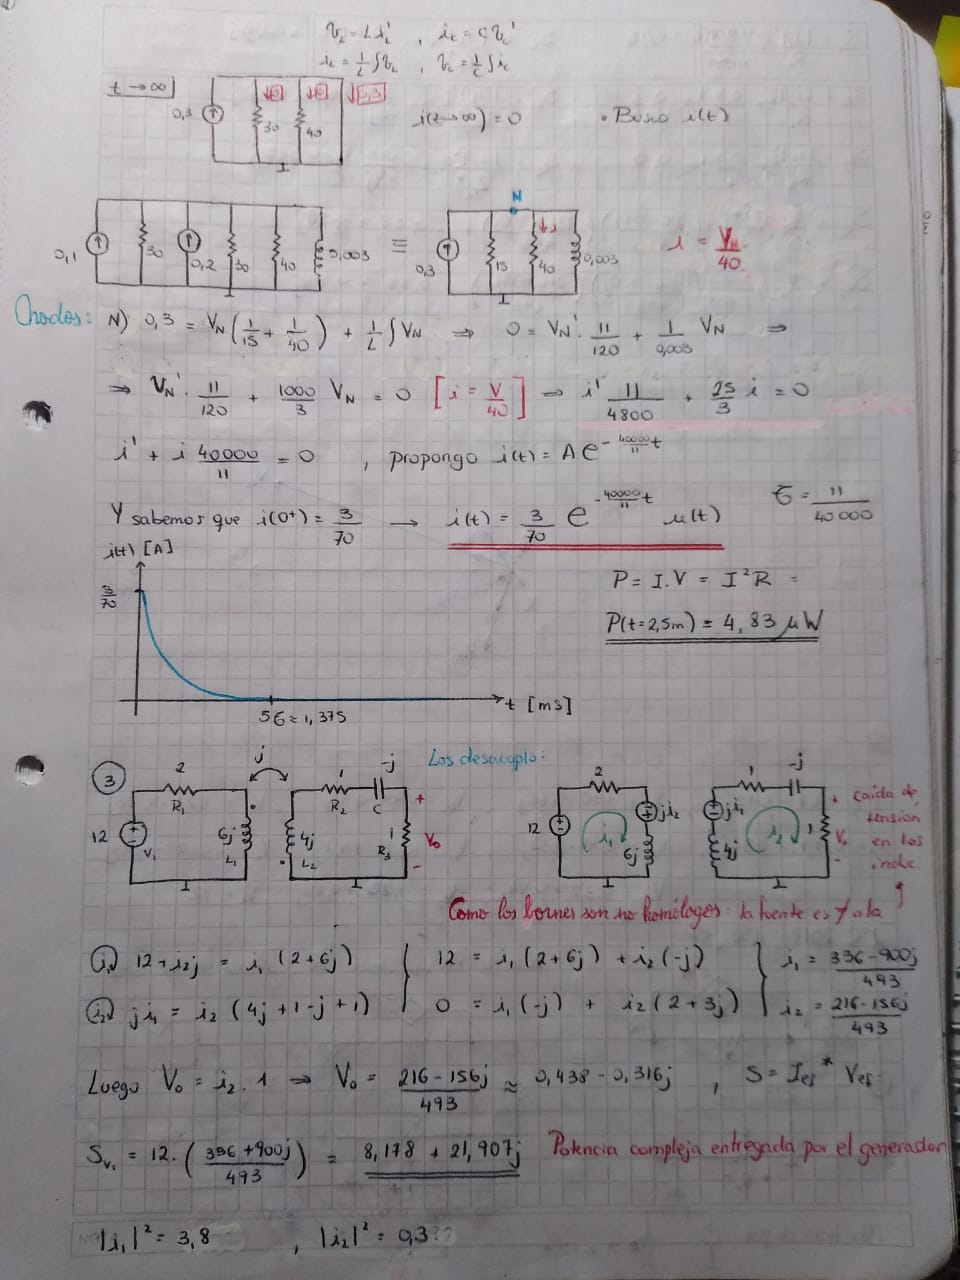 v_L = L i_L' , i_c = C v_c'
i_L = 1/L ∫v_L , v_c = 1/C ∫i_c
t → ∞
0,3 30 0 40 0 0,3
i(t→∞) = 0 • Busco i(t)
N
0,1 30 0,2 30 40 0,003 ≡ 0,3 15 40 i 0,003 i = V_N/40
Nodos: N) 0,3 = V_N (1/15 + 1/40) + 1/L ∫V_N ⇒ 0 = V_N' . 11/120 + 1/0,003 V_N ⇒
⇒ V_N' . 11/120 + 1000/3 V_N = 0 [i = V/40] → i' 11/4800 + 25/3 i = 0
i' + i 40000/11 = 0 , propongo i(t) = A e^(-40000/11 t)
Y sabemos que i(0+) = 3/70 → i(t) = 3/70 e^(-40000/11 t) u(t) τ = 11/40000
i(t) [A]
3/70
P = I.V = I²R =
P(t=2,5m) = 4,83 μW
t [ms]
5τ ≈ 1,375
3 2 R1 j 1 R2 -j C Los desacoplo: 2 1 -j
12 V1 6j L1 4j L2 1 R3 + V0 - 12 i1 ji2 6j ji1 4j i2 1 + V0 - caida de tension en los induc.
Como los bornes son no homólogos: la fuente es ≠ a la
i1) 12 + i2j = i1 (2+6j) 12 = i1 (2+6j) + i2 (-j) i1 = 336-900j/493
i2) ji1 = i2 (4j+1-j+1) 0 = i1 (-j) + i2 (2+3j) i2 = 216-156j/493
Luego V0 = i2 . 1 ⇒ V0 = 216-156j/493 ≈ 0,438 - 0,316j , S = Ief* Vef
Sv1 = 12. (336+900j/493) = 8,178 + 21,907j Potencia compleja entregada por el generador
|i1|² = 3,8 , |i2|² = 0,3